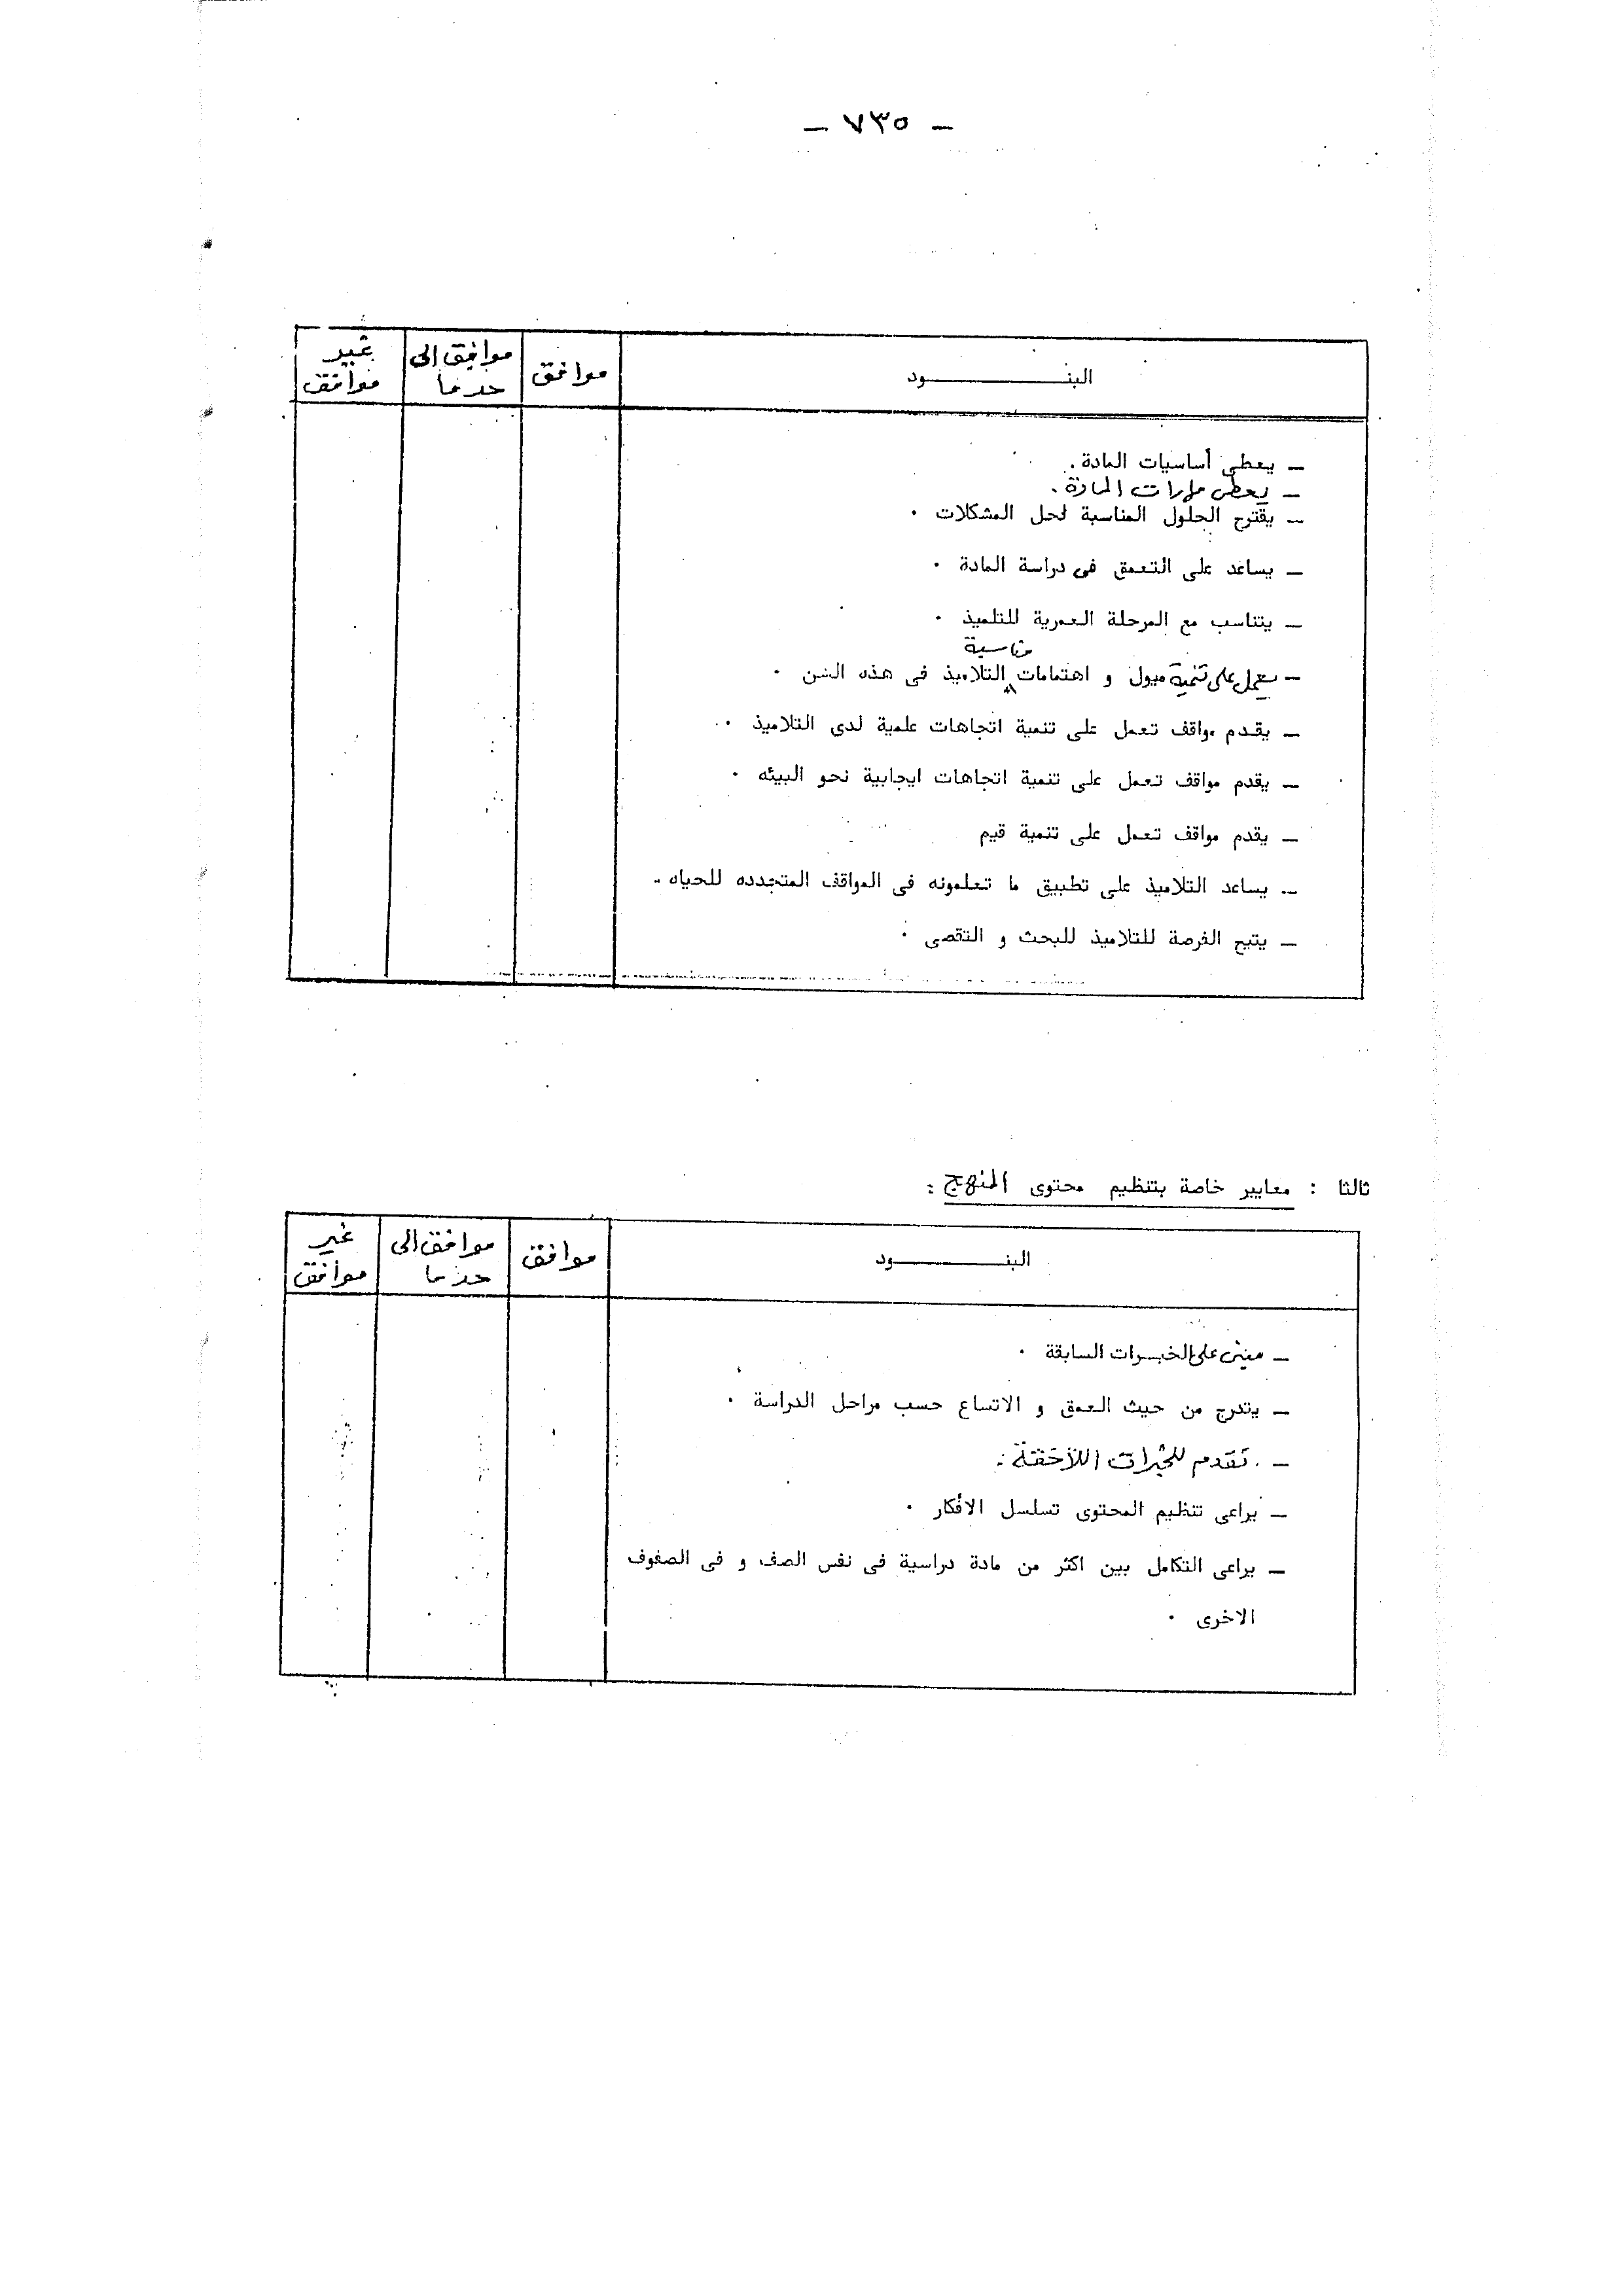 - ٧٣٥ -
البنـــــــــود
موافق
موافق الى حد ما
غير موافق
- يعطى أساسيات المادة .
- يعطى مهارات المادة .
- يقترح الحلول المناسبة لحل المشكلات .
- يساعد على التعمق فى دراسة المادة .
- يتناسب مع المرحلة العمرية للتلميذ .
مناسبة
- يعمل على تنمية ميول و اهتمامات التلاميذ فى هذه السن .
- يقدم مواقف تعمل على تنمية اتجاهات علمية لدى التلاميذ .
- يقدم مواقف تعمل على تنمية اتجاهات ايجابية نحو البيئه .
- يقدم مواقف تعمل على تنمية قيم
- يساعد التلاميذ على تطبيق ما تعلمونه فى المواقف المتجدده للحياه .
- يتيح الفرصة للتلاميذ للبحث و التقصى .
ثالثا : معايير خاصة بتنظيم محتوى المنهج :
البنـــــــــود
موافق
موافق الى حد ما
غير موافق
- مبنى على الخبرات السابقة .
- يتدرج من حيث العمق و الاتساع حسب مراحل الدراسة .
- تقدم للخبرات اللاحقة .
- يراعى تنظيم المحتوى تسلسل الافكار .
- يراعى التكامل بين اكثر من مادة دراسية فى نفس الصف و فى الصفوف
الاخرى .